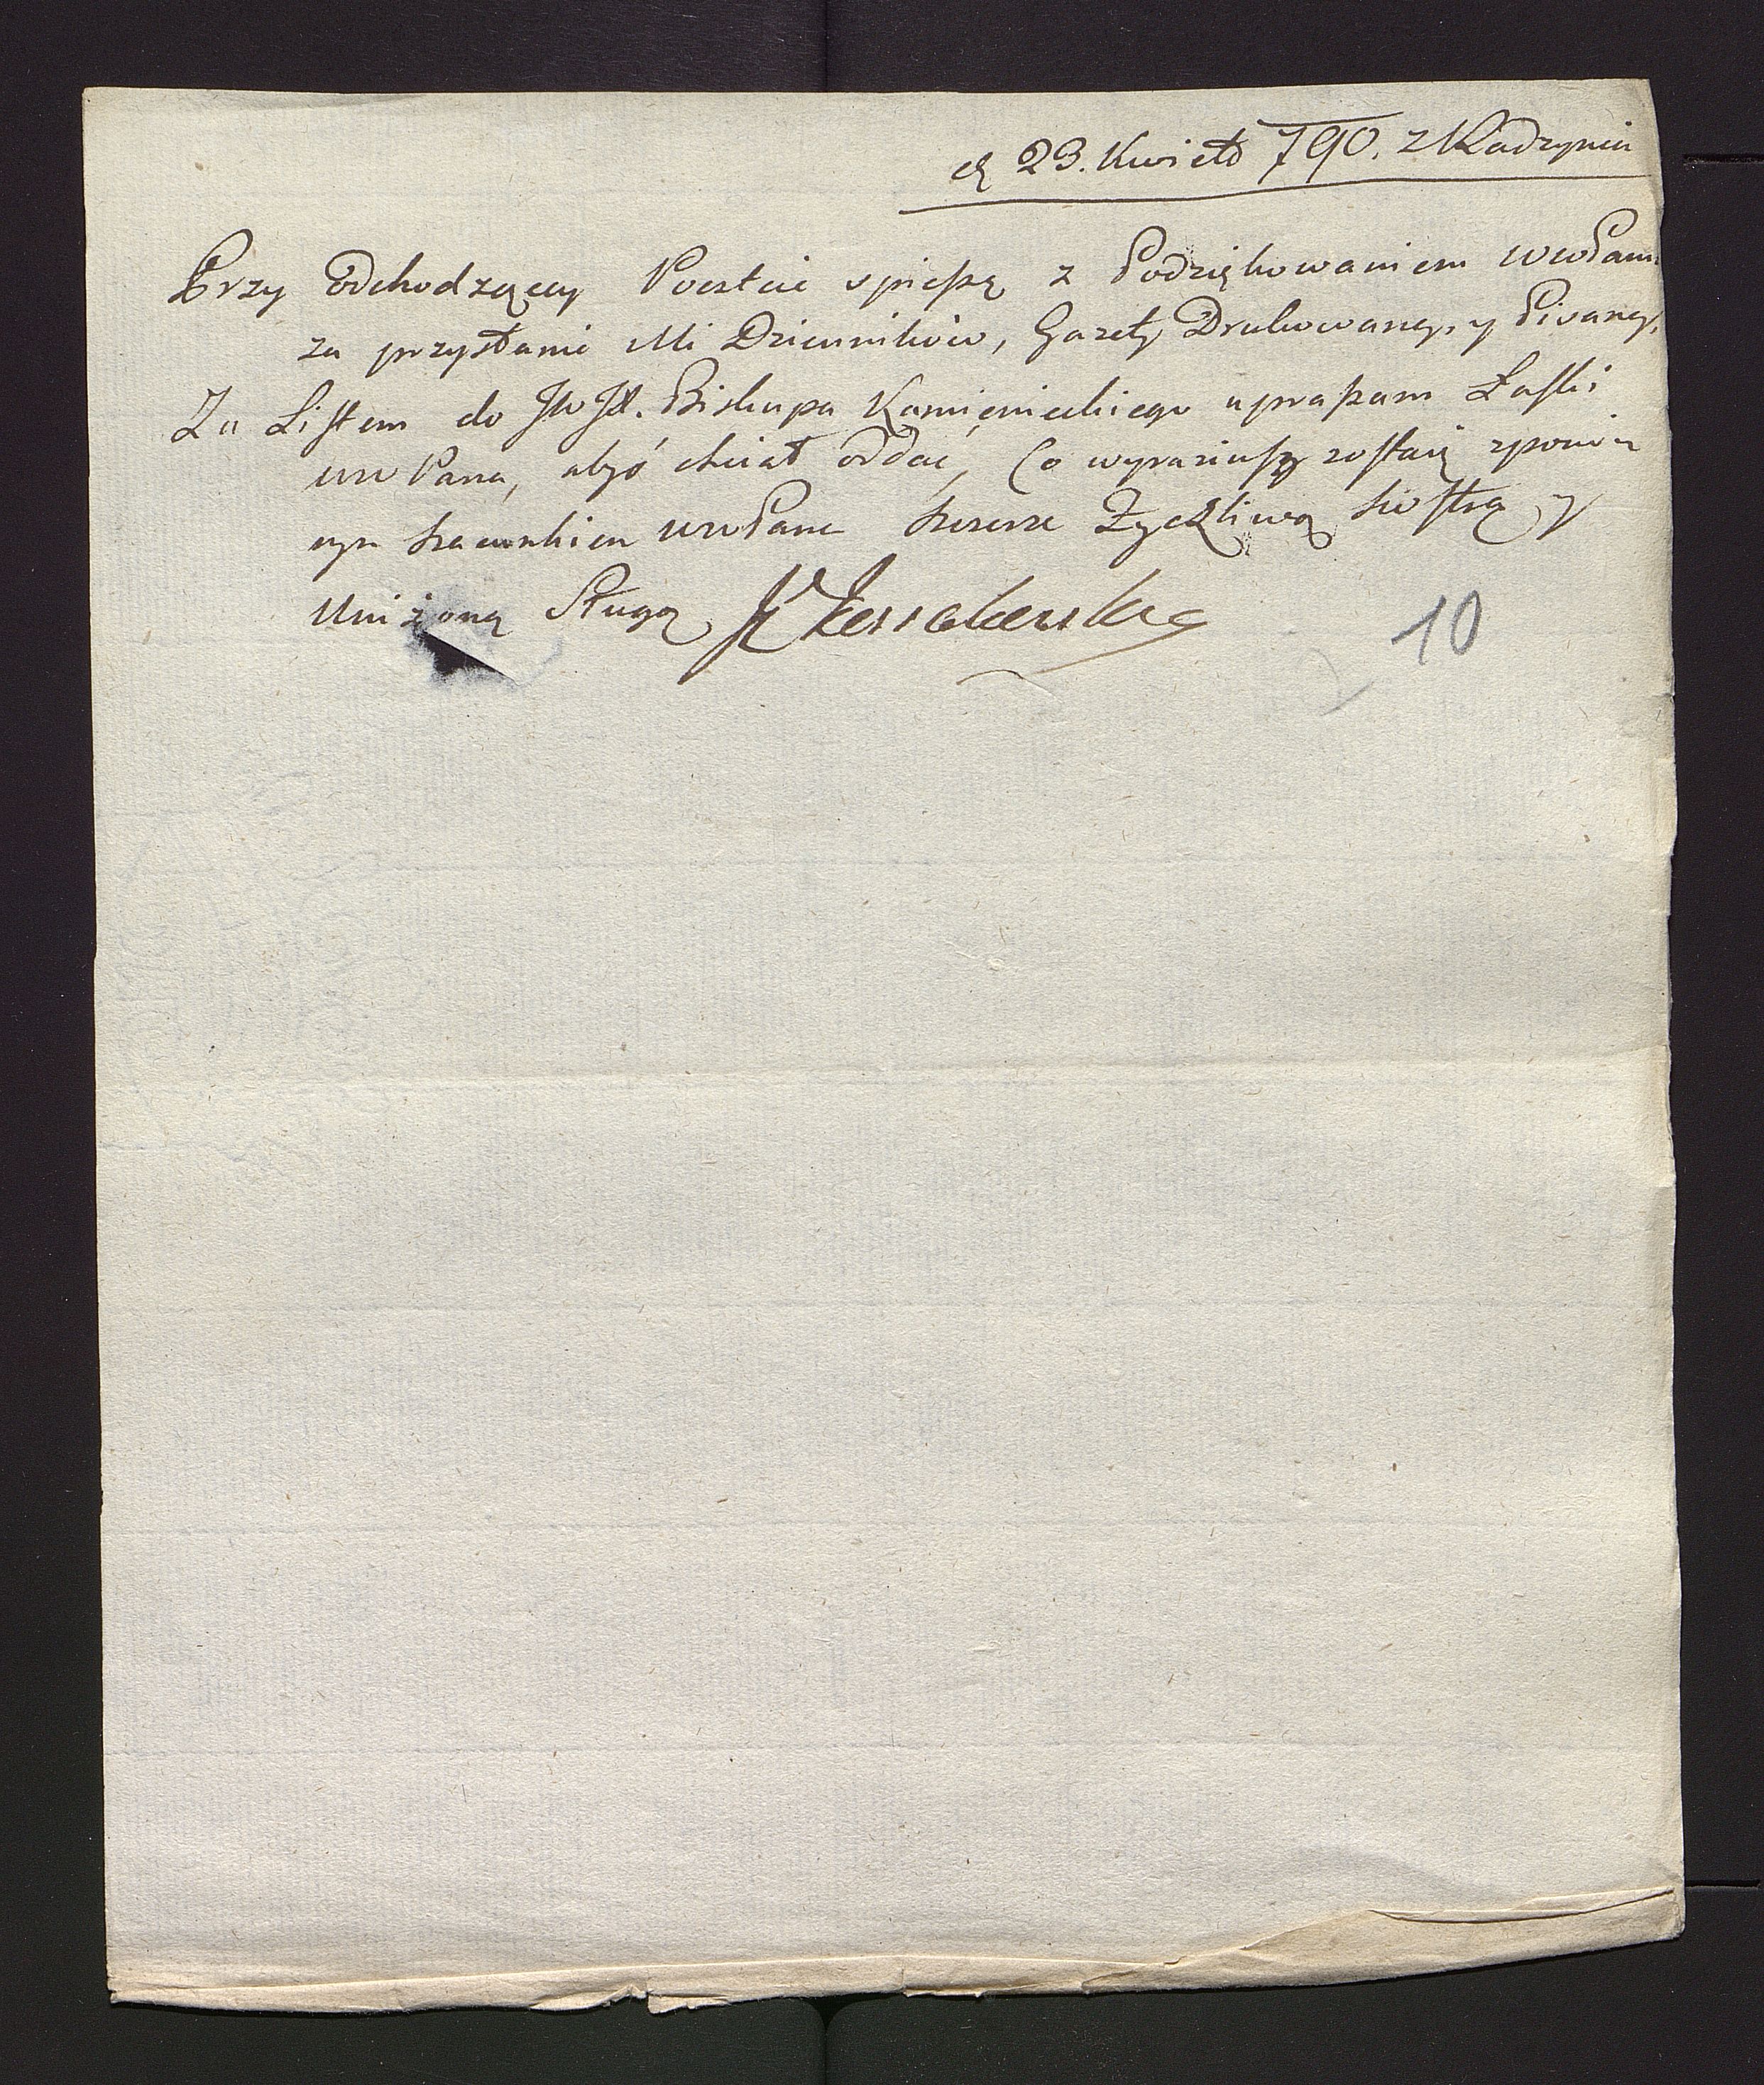 d 23. Kwiet 790. z Radzynia
Przy Odchodzącey Poczcie spieszę z Podziękowaniem WWPanu
za przysłanie Mi Dzienników, Gazety Drukowaney, y Pisaney,
Za Listem do JW JX. Biskupa Kamienieckiego upraszam Łaski
WW Pana, abyś chciał oddać, Co wyraziwszy zostaię z powin
nym szacunkiem WWPana szczerze Zyczliwą Siostrą y
Uniżoną Sługą
10